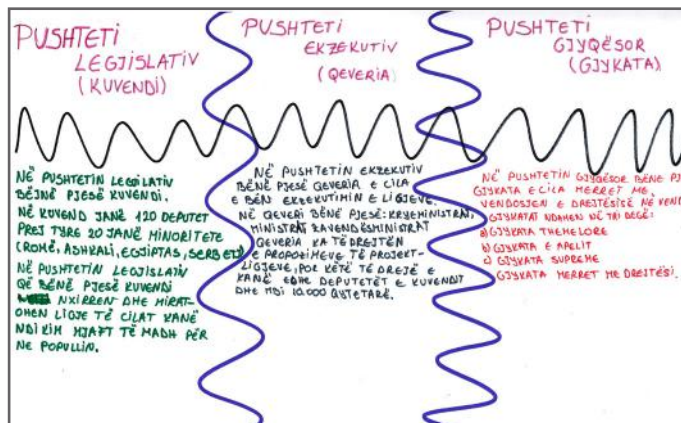 PUSHTETI
LEGJISLATIV
(KUVENDI)
NË PUSHTETIN LEGJILATIV
BËJNË PJESË KUVENDI.
NË KUVEND JANË 120 DEPUTET
PREJ TYRE 20 JANË MINORITETE
(ROMË, ASHKALI, EGJIPTAS, SERB ETJ)
NË PUSHTETIN LEGJISLATIV
QË BËNË PJESË KUVENDI
NXIRREN DHE MIRAT-
OHEN LIGJE TË CILAT KANË
NDIKIM MJAFT TË MADH PËR
NE POPULLIN.
PUSHTETI
EKZEKUTIV
(QEVERIA)
NË PUSHTETIN EKZEKUTIV
BËNË PJESË QEVERIA E CILA
E BËN EKZEKUTIMIN E LIGJEVE.
NË QEVERI BËNË PJESË: KRYEMINISTRAT,
MINISTRAT ZAVENDËSMINISTRAT
QEVERIA KA TË DREJTËN
E PROPOZIMEVE TË PROJEKT-
LIGJEVE, POR KËTË TË DREJË E
KANË EDHE DEPUTETET E KUVENDIT
DHE MBI 10.000 QYTETARË.
PUSHTETI
GJYQËSOR
(GJYKATA)
NË PUSHTETIN GJYQËSOR BËNË
GJYKATA E CILA MERRET ME
VENDOSJEN E DREJTËSISË NË
GJYKATAT NDAHEN NË TRI DEGË:
a) GJYKATA THEMELORE
b) GJYKATA E APELIT
c) GJYKATA SUPREME
GJYKATA MERRET ME DREJTËSI.